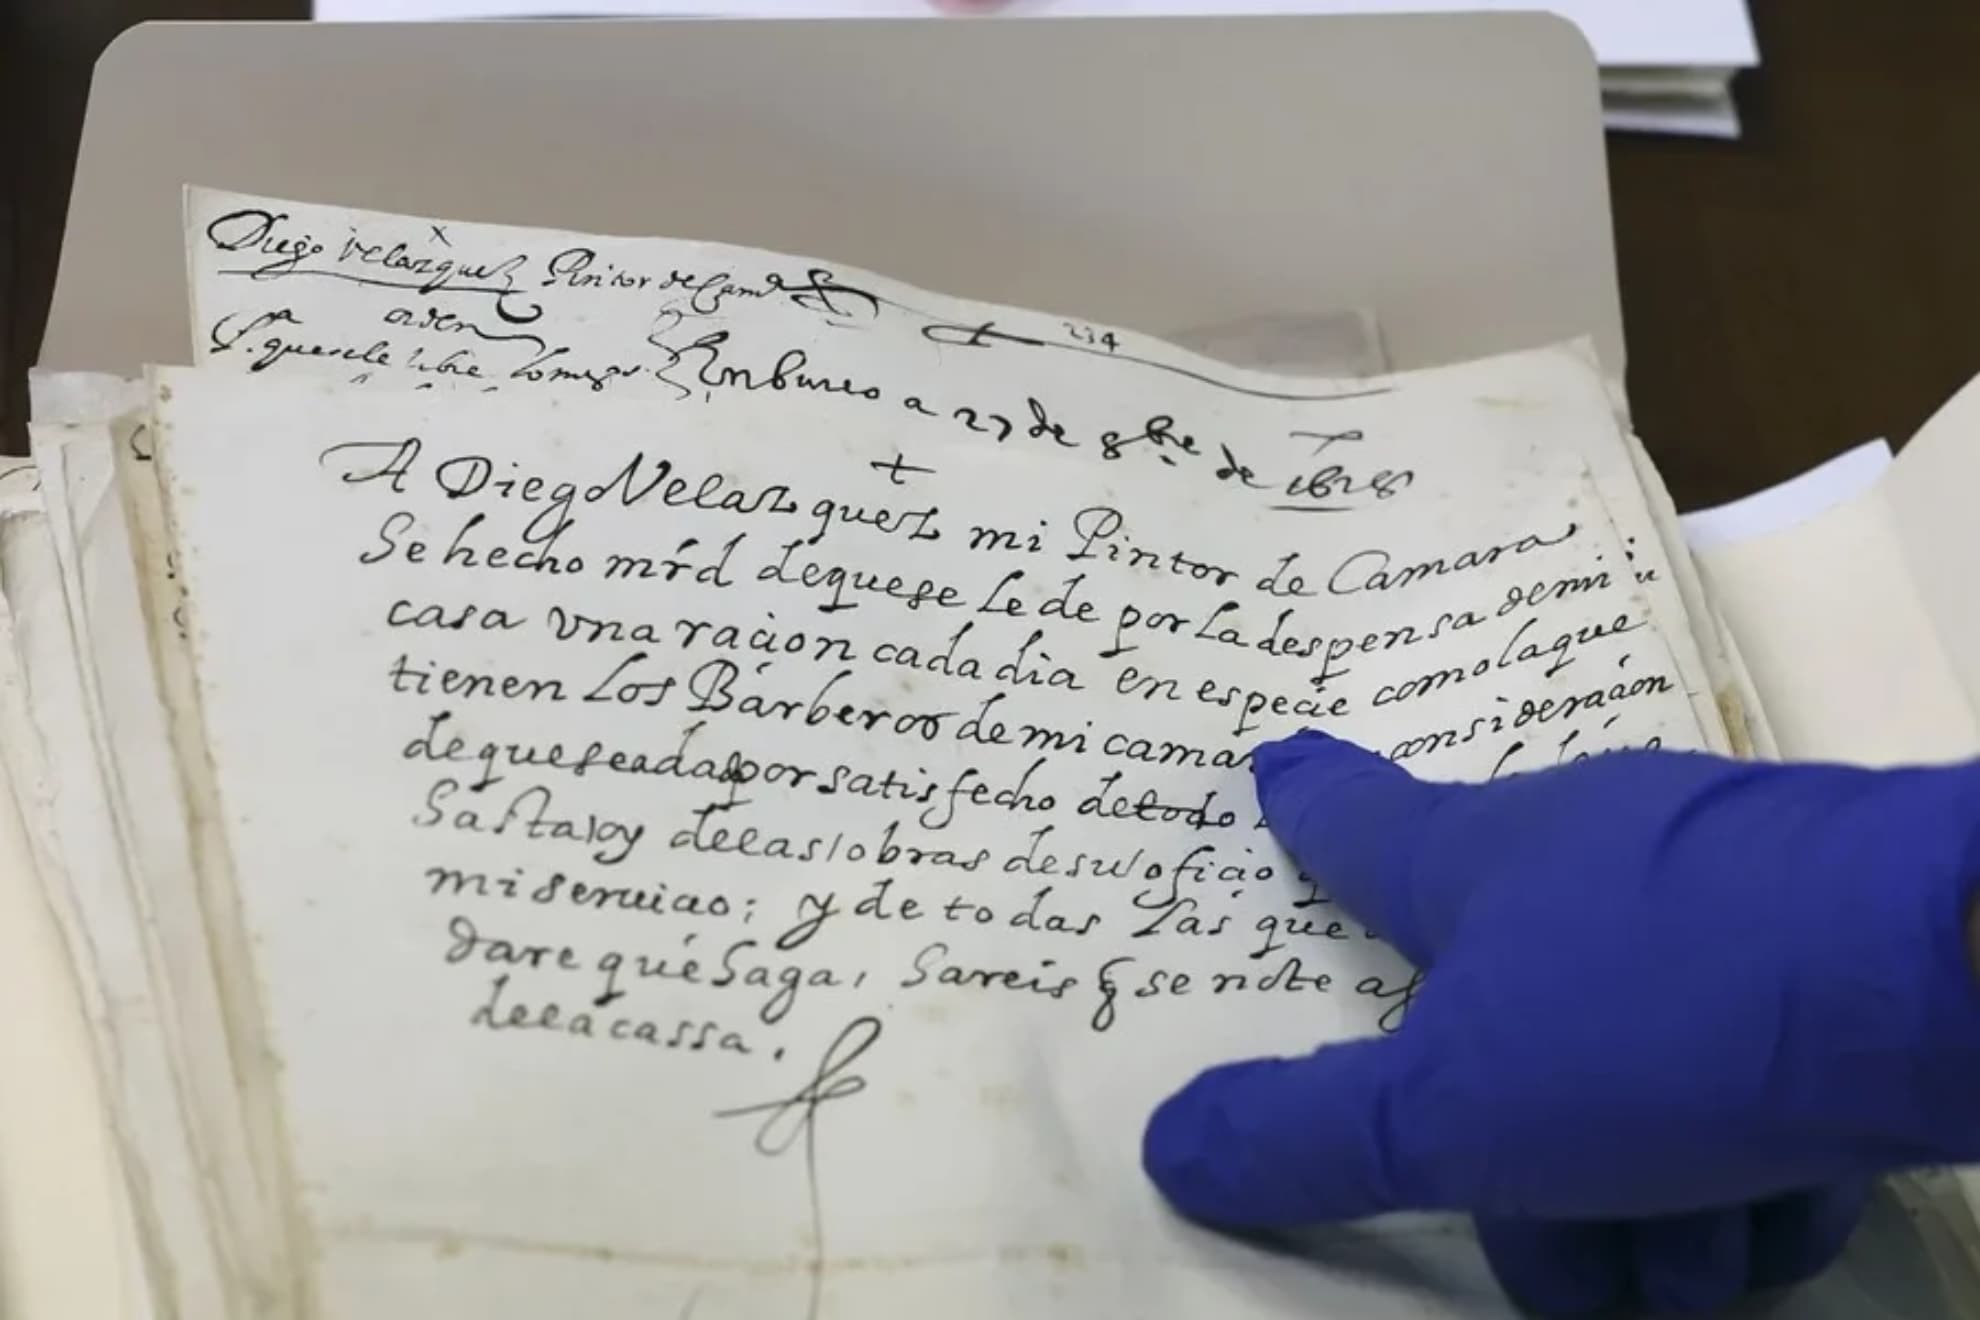 Diego Velazquez Pintor de Cam
orden
234
En bureo a 27 de 8bre de 1628
A Diego Velazquez mi Pintor de Camara
Se hecho mrd de que se le de por la despensa de mi
casa vna racion cada dia en especie como la que
tienen los Barberos de mi cama consideracion
de que se a dado por satisfecho de todo
Sasta oy de las obras de su oficio
mi seruicio; y de todas las que
dare que Saga, Sareis q se note
de la cassa.